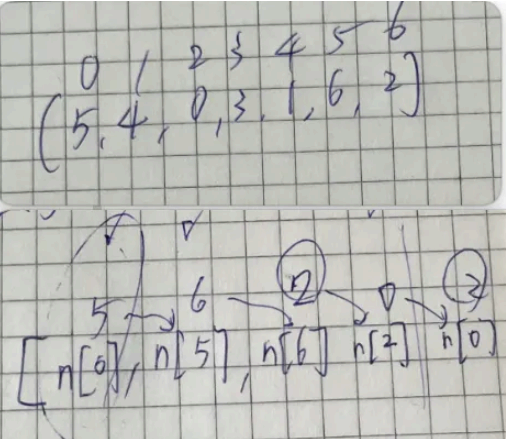 0 1 2 3 4 5 6
(5, 4, 0, 3, 1, 6, 2]
5 6 2 0
[n[0], n[5], n[6] n[2] n[0]